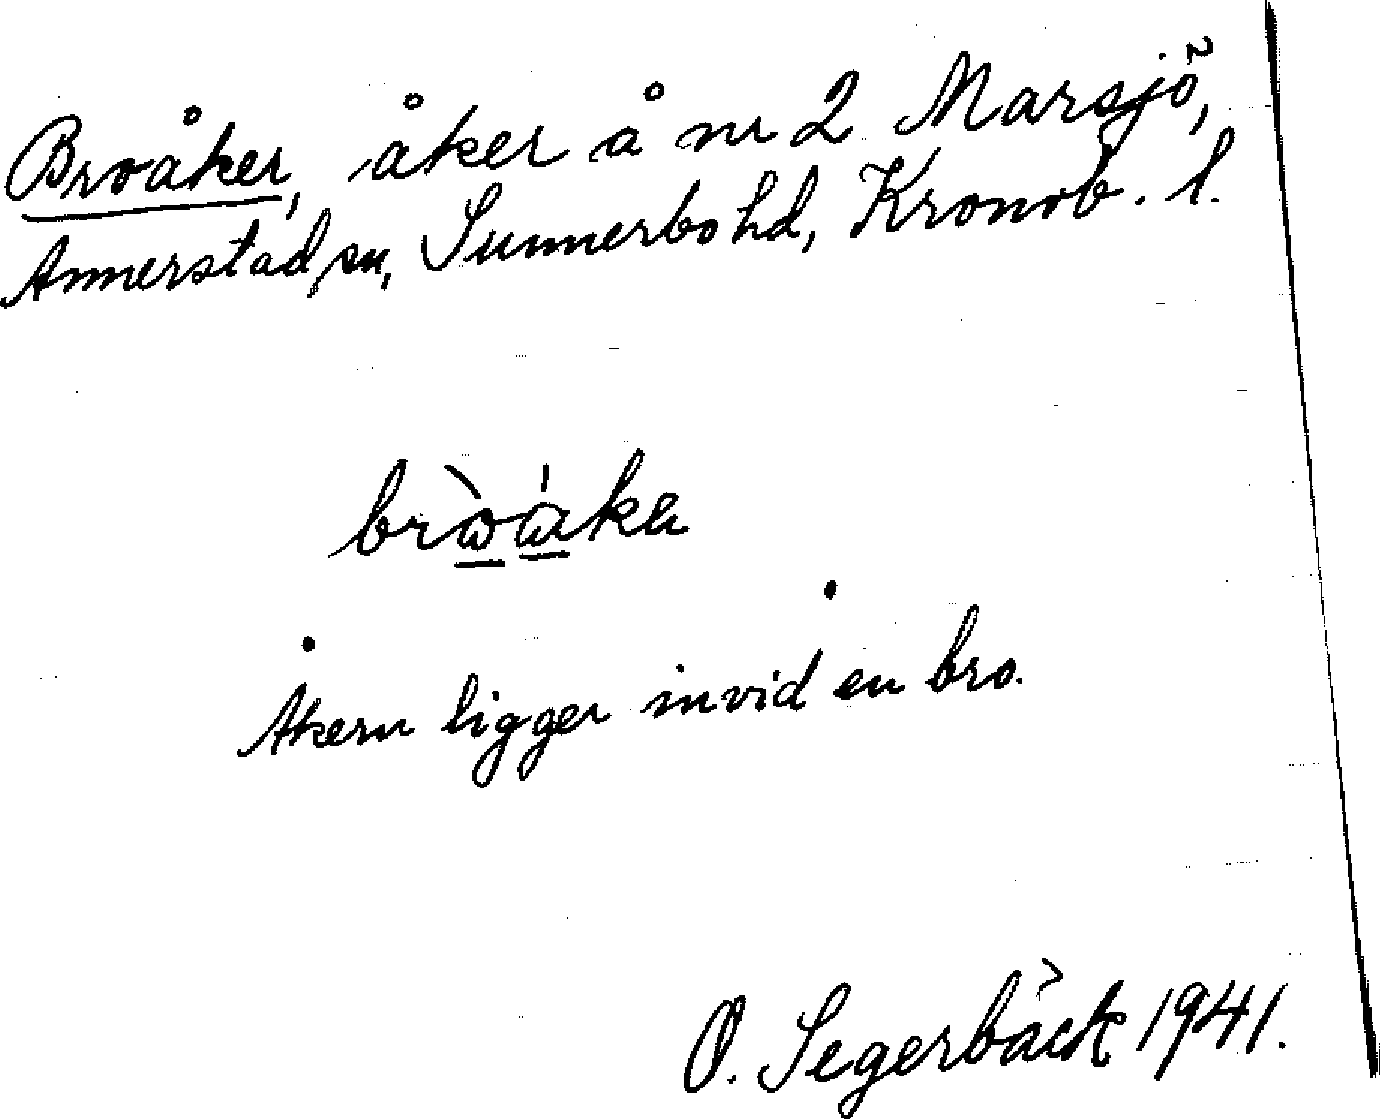 Broåker, åker å nr 2 Marsjö,
Annerstad sn, Sunnerbo hd, Kronob. l.
Åkern ligger invid en bro.
O. Segerbäck 1941.